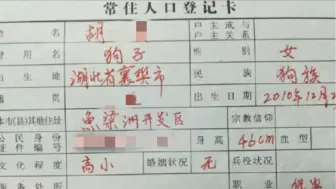 常住人口登记卡
名 胡 户主或与户主关系
曾用名 狗子 性别 女
出生地 湖北省襄樊市 民族 狗族
籍贯 出生日期 2010年12月2
本市(县)其他住址 鱼梁洲开发区 宗教信仰
公民身份证件编号 身高 46cm 血型
文化程度 高小 婚姻状况 无 兵役状况
服务处所 职业